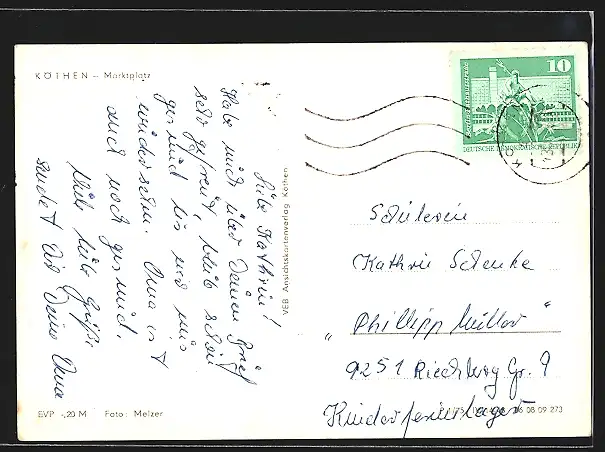 KÖTHEN – Marktplatz
Liebe Kathrin!
Habe mich über Deinen Brief
sehr gefreut, bleib schön
gesund bis wir uns
wiedersehn. Oma ist
auch noch gesund.
Viele liebe Grüße
sendet Dir Deine Oma
EVP -,20 M Foto: Melzer
VEB Ansichtskartenverlag Köthen
10
DEUTSCHE DEMOKRATISCHE REPUBLIK
Schülerin
Kathrin Schenke
"Phillipp Müller"
9251 Riechberg Nr. 9
Kinderferienlager
06 08 09 273